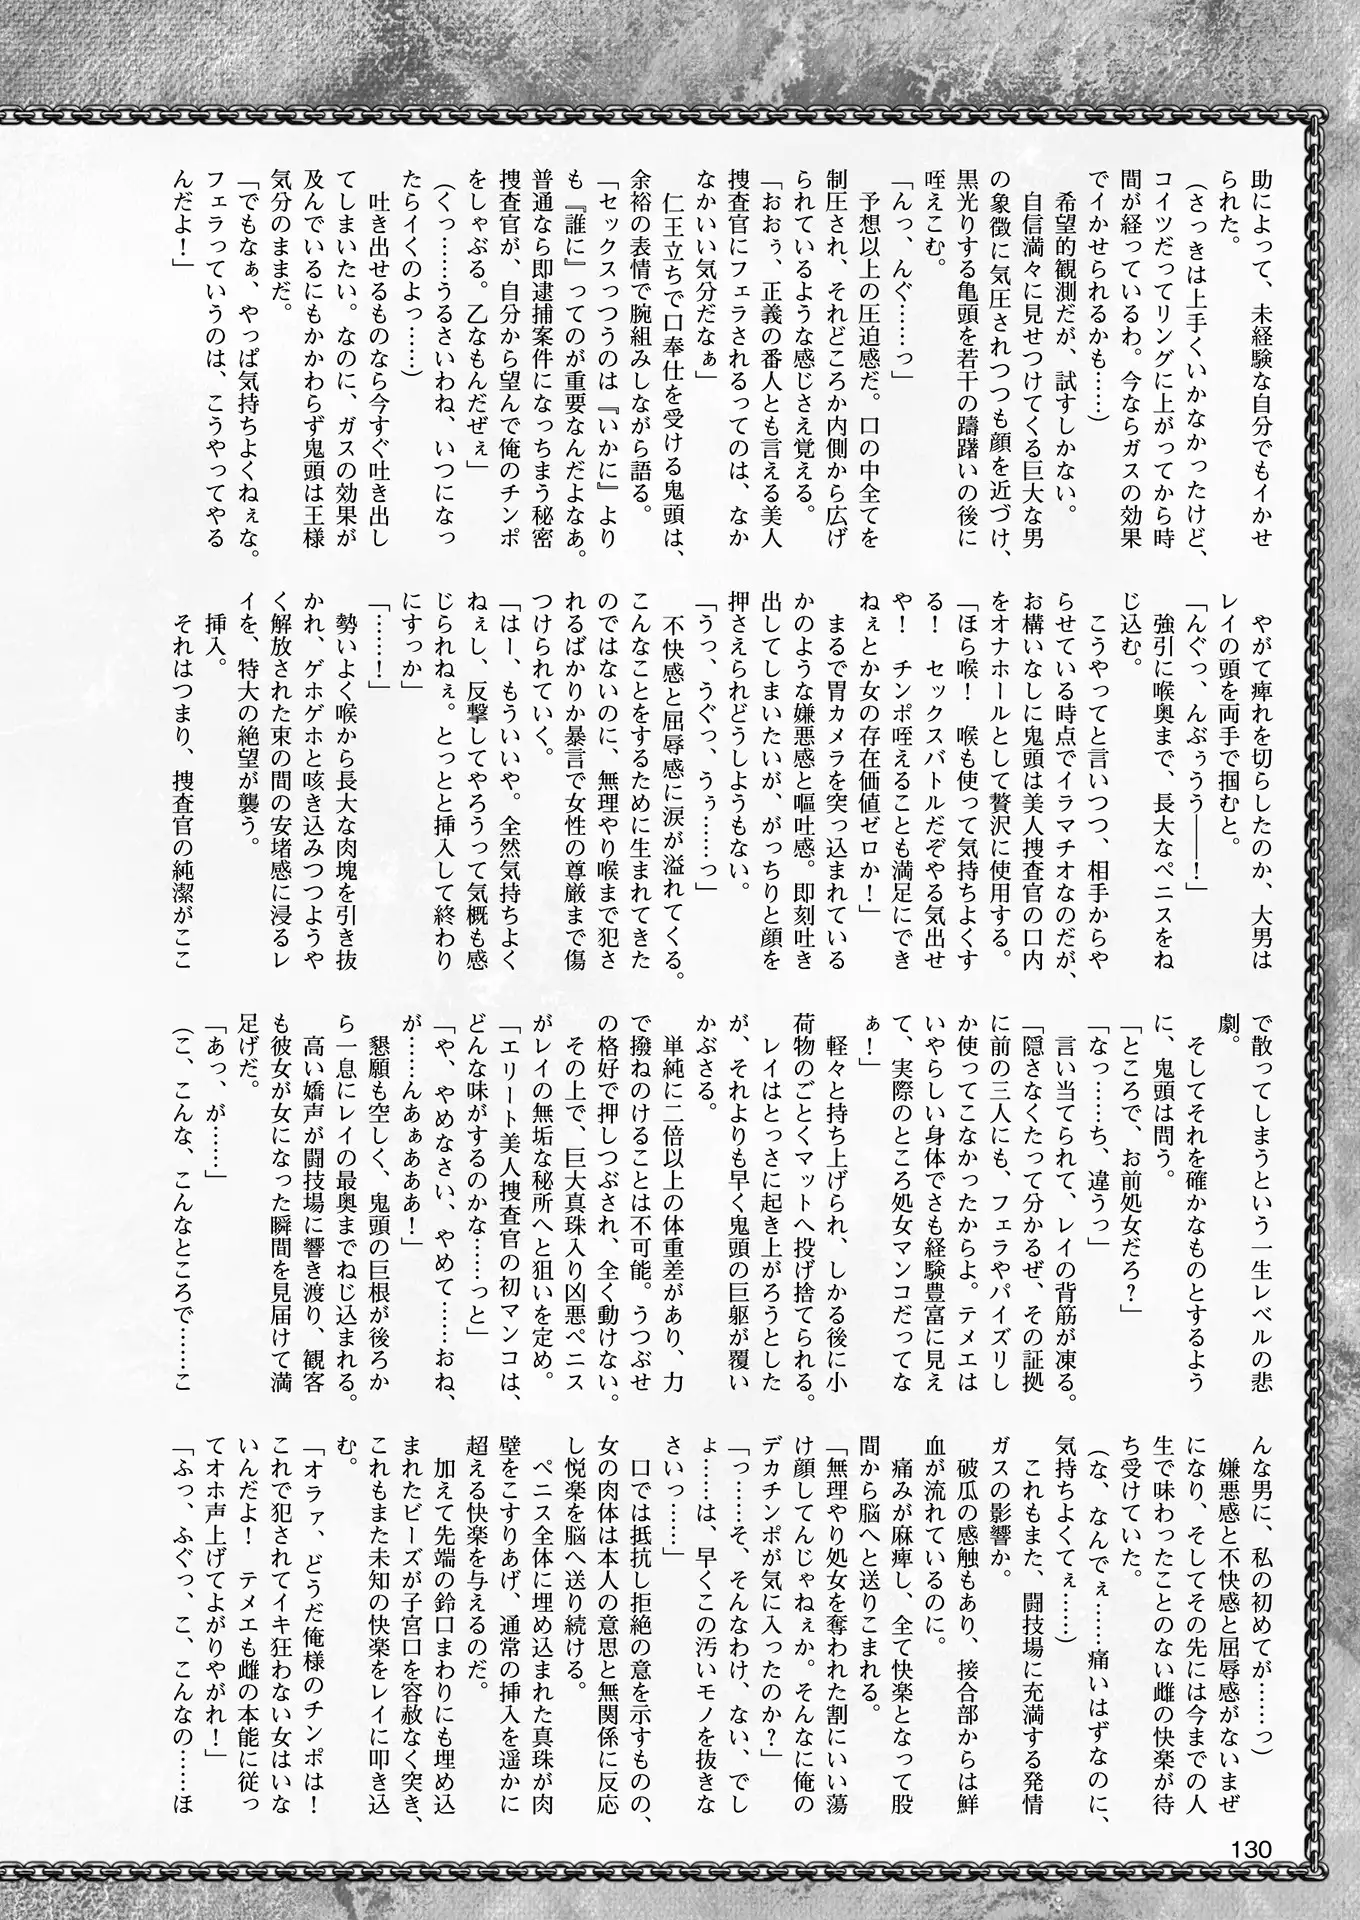 助によって、未経験な自分でもイかせ
られた。
（さっきは上手くいかなかったけど、
コイツだってリングに上がってから時
間が経っているわ。今ならガスの効果
でイかせられるかも……）
希望的観測だが、試すしかない。
自信満々に見せつけてくる巨大な男
の象徴に気圧されつつも顔を近づけ、
黒光りする亀頭を若干の躊躇いの後に
咥えこむ。
「んっ、んぐ……っ」
予想以上の圧迫感だ。口の中全てを
制圧され、それどころか内側から広げ
られているような感じさえ覚える。
「おおぅ、正義の番人とも言える美人
捜査官にフェラされるってのは、なか
なかいい気分だなぁ」
仁王立ちで口奉仕を受ける鬼頭は、
余裕の表情で腕組みしながら語る。
「セックスっつうのは『いかに』より
も『誰に』ってのが重要なんだよなあ。
普通なら即逮捕案件になっちまう秘密
捜査官が、自分から望んで俺のチンポ
をしゃぶる。乙なもんだぜぇ」
（くっ……うるさいわね、いつになっ
たらイくのよっ……）
吐き出せるものなら今すぐ吐き出し
てしまいたい。なのに、ガスの効果が
及んでいるにもかかわらず鬼頭は王様
気分のままだ。
「でもなぁ、やっぱ気持ちよくねぇな。
フェラっていうのは、こうやってやる
んだよ！」
やがて痺れを切らしたのか、大男は
レイの頭を両手で掴むと。
「んぐっ、んぶぅうう――！」
強引に喉奥まで、長大なペニスをね
じ込む。
こうやってと言いつつ、相手からや
らせている時点でイラマチオなのだが、
お構いなしに鬼頭は美人捜査官の口内
をオナホールとして贅沢に使用する。
「ほら喉！　喉も使って気持ちよくす
る！　セックスバトルだぞやる気出せ
や！　チンポ咥えることも満足にでき
ねぇとか女の存在価値ゼロか！」
まるで胃カメラを突っ込まれている
かのような嫌悪感と嘔吐感。即刻吐き
出してしまいたいが、がっちりと顔を
押さえられどうしようもない。
「うっ、うぐっ、うぅ……っ」
不快感と屈辱感に涙が溢れてくる。
こんなことをするために生まれてきた
のではないのに、無理やり喉まで犯さ
れるばかりか暴言で女性の尊厳まで傷
つけられていく。
「はー、もういいや。全然気持ちよく
ねぇし、反撃してやろうって気概も感
じられねぇ。とっとと挿入して終わり
にすっか」
「……！」
勢いよく喉から長大な肉塊を引き抜
かれ、ゲホゲホと咳き込みつつようや
く解放された束の間の安堵感に浸るレ
イを、特大の絶望が襲う。
挿入。
それはつまり、捜査官の純潔がここ
で散ってしまうという一生レベルの悲
劇。
そしてそれを確かなものとするよう
に、鬼頭は問う。
「ところで、お前処女だろ？」
「なっ……ち、違うっ」
言い当てられて、レイの背筋が凍る。
「隠さなくたって分かるぜ、その証拠
に前の三人にも、フェラやパイズリし
か使ってこなかったからよ。テメエは
いやらしい身体でさも経験豊富に見え
て、実際のところ処女マンコだってな
ぁ！」
軽々と持ち上げられ、しかる後に小
荷物のごとくマットへ投げ捨てられる。
レイはとっさに起き上がろうとした
が、それよりも早く鬼頭の巨躯が覆い
かぶさる。
単純に二倍以上の体重差があり、力
で撥ねのけることは不可能。うつぶせ
の格好で押しつぶされ、全く動けない。
その上で、巨大真珠入り凶悪ペニス
がレイの無垢な秘所へと狙いを定め。
「エリート美人捜査官の初マンコは、
どんな味がするのかな……っと」
「や、やめなさい、やめて……おね、
が……んあぁあああ！」
懇願も空しく、鬼頭の巨根が後ろか
ら一息にレイの最奥までねじ込まれる。
高い嬌声が闘技場に響き渡り、観客
も彼女が女になった瞬間を見届けて満
足げだ。
「あっ、が……」
（こ、こんな、こんなところで……こ
んな男に、私の初めてが……っ）
嫌悪感と不快感と屈辱感がないまぜ
になり、そしてその先には今までの人
生で味わったことのない雌の快楽が待
ち受けていた。
（な、なんでぇ……痛いはずなのに、
気持ちよくてぇ……）
これもまた、闘技場に充満する発情
ガスの影響か。
破瓜の感触もあり、接合部からは鮮
血が流れているのに。
痛みが麻痺し、全て快楽となって股
間から脳へと送りこまれる。
「無理やり処女を奪われた割にいい蕩
け顔してんじゃねぇか。そんなに俺の
デカチンポが気に入ったのか？」
「っ……そ、そんなわけ、ない、でし
ょ……は、早くこの汚いモノを抜きな
さいっ……」
口では抵抗し拒絶の意を示すものの、
女の肉体は本人の意思と無関係に反応
し悦楽を脳へ送り続ける。
ペニス全体に埋め込まれた真珠が肉
壁をこすりあげ、通常の挿入を遥かに
超える快楽を与えるのだ。
加えて先端の鈴口まわりにも埋め込
まれたビーズが子宮口を容赦なく突き、
これもまた未知の快楽をレイに叩き込
む。
「オラァ、どうだ俺様のチンポは！
これで犯されてイキ狂わない女はいな
いんだよ！　テメエも雌の本能に従っ
てオホ声上げてよがりやがれ！」
「ふっ、ふぐっ、こ、こんなの……ほ
130